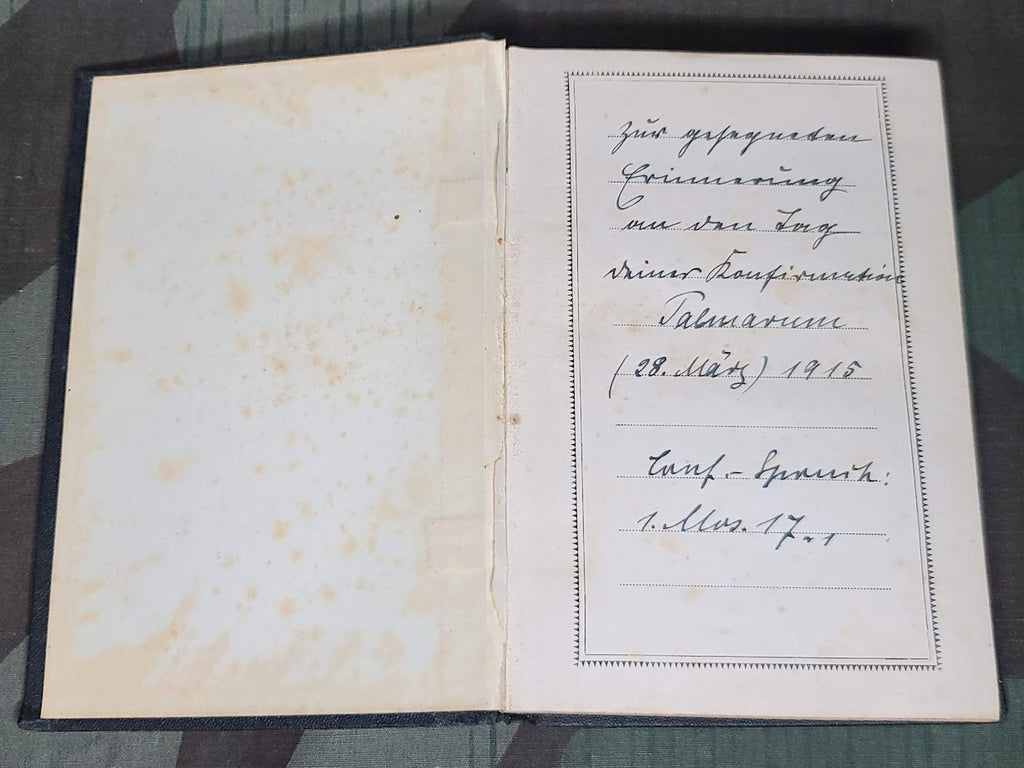 Zur gesegneten
Erinnerung
an den Tag
deiner Konfirmation
Palmarum
(28. März) 1915
Conf.- Spruch:
1. Mos. 17,1